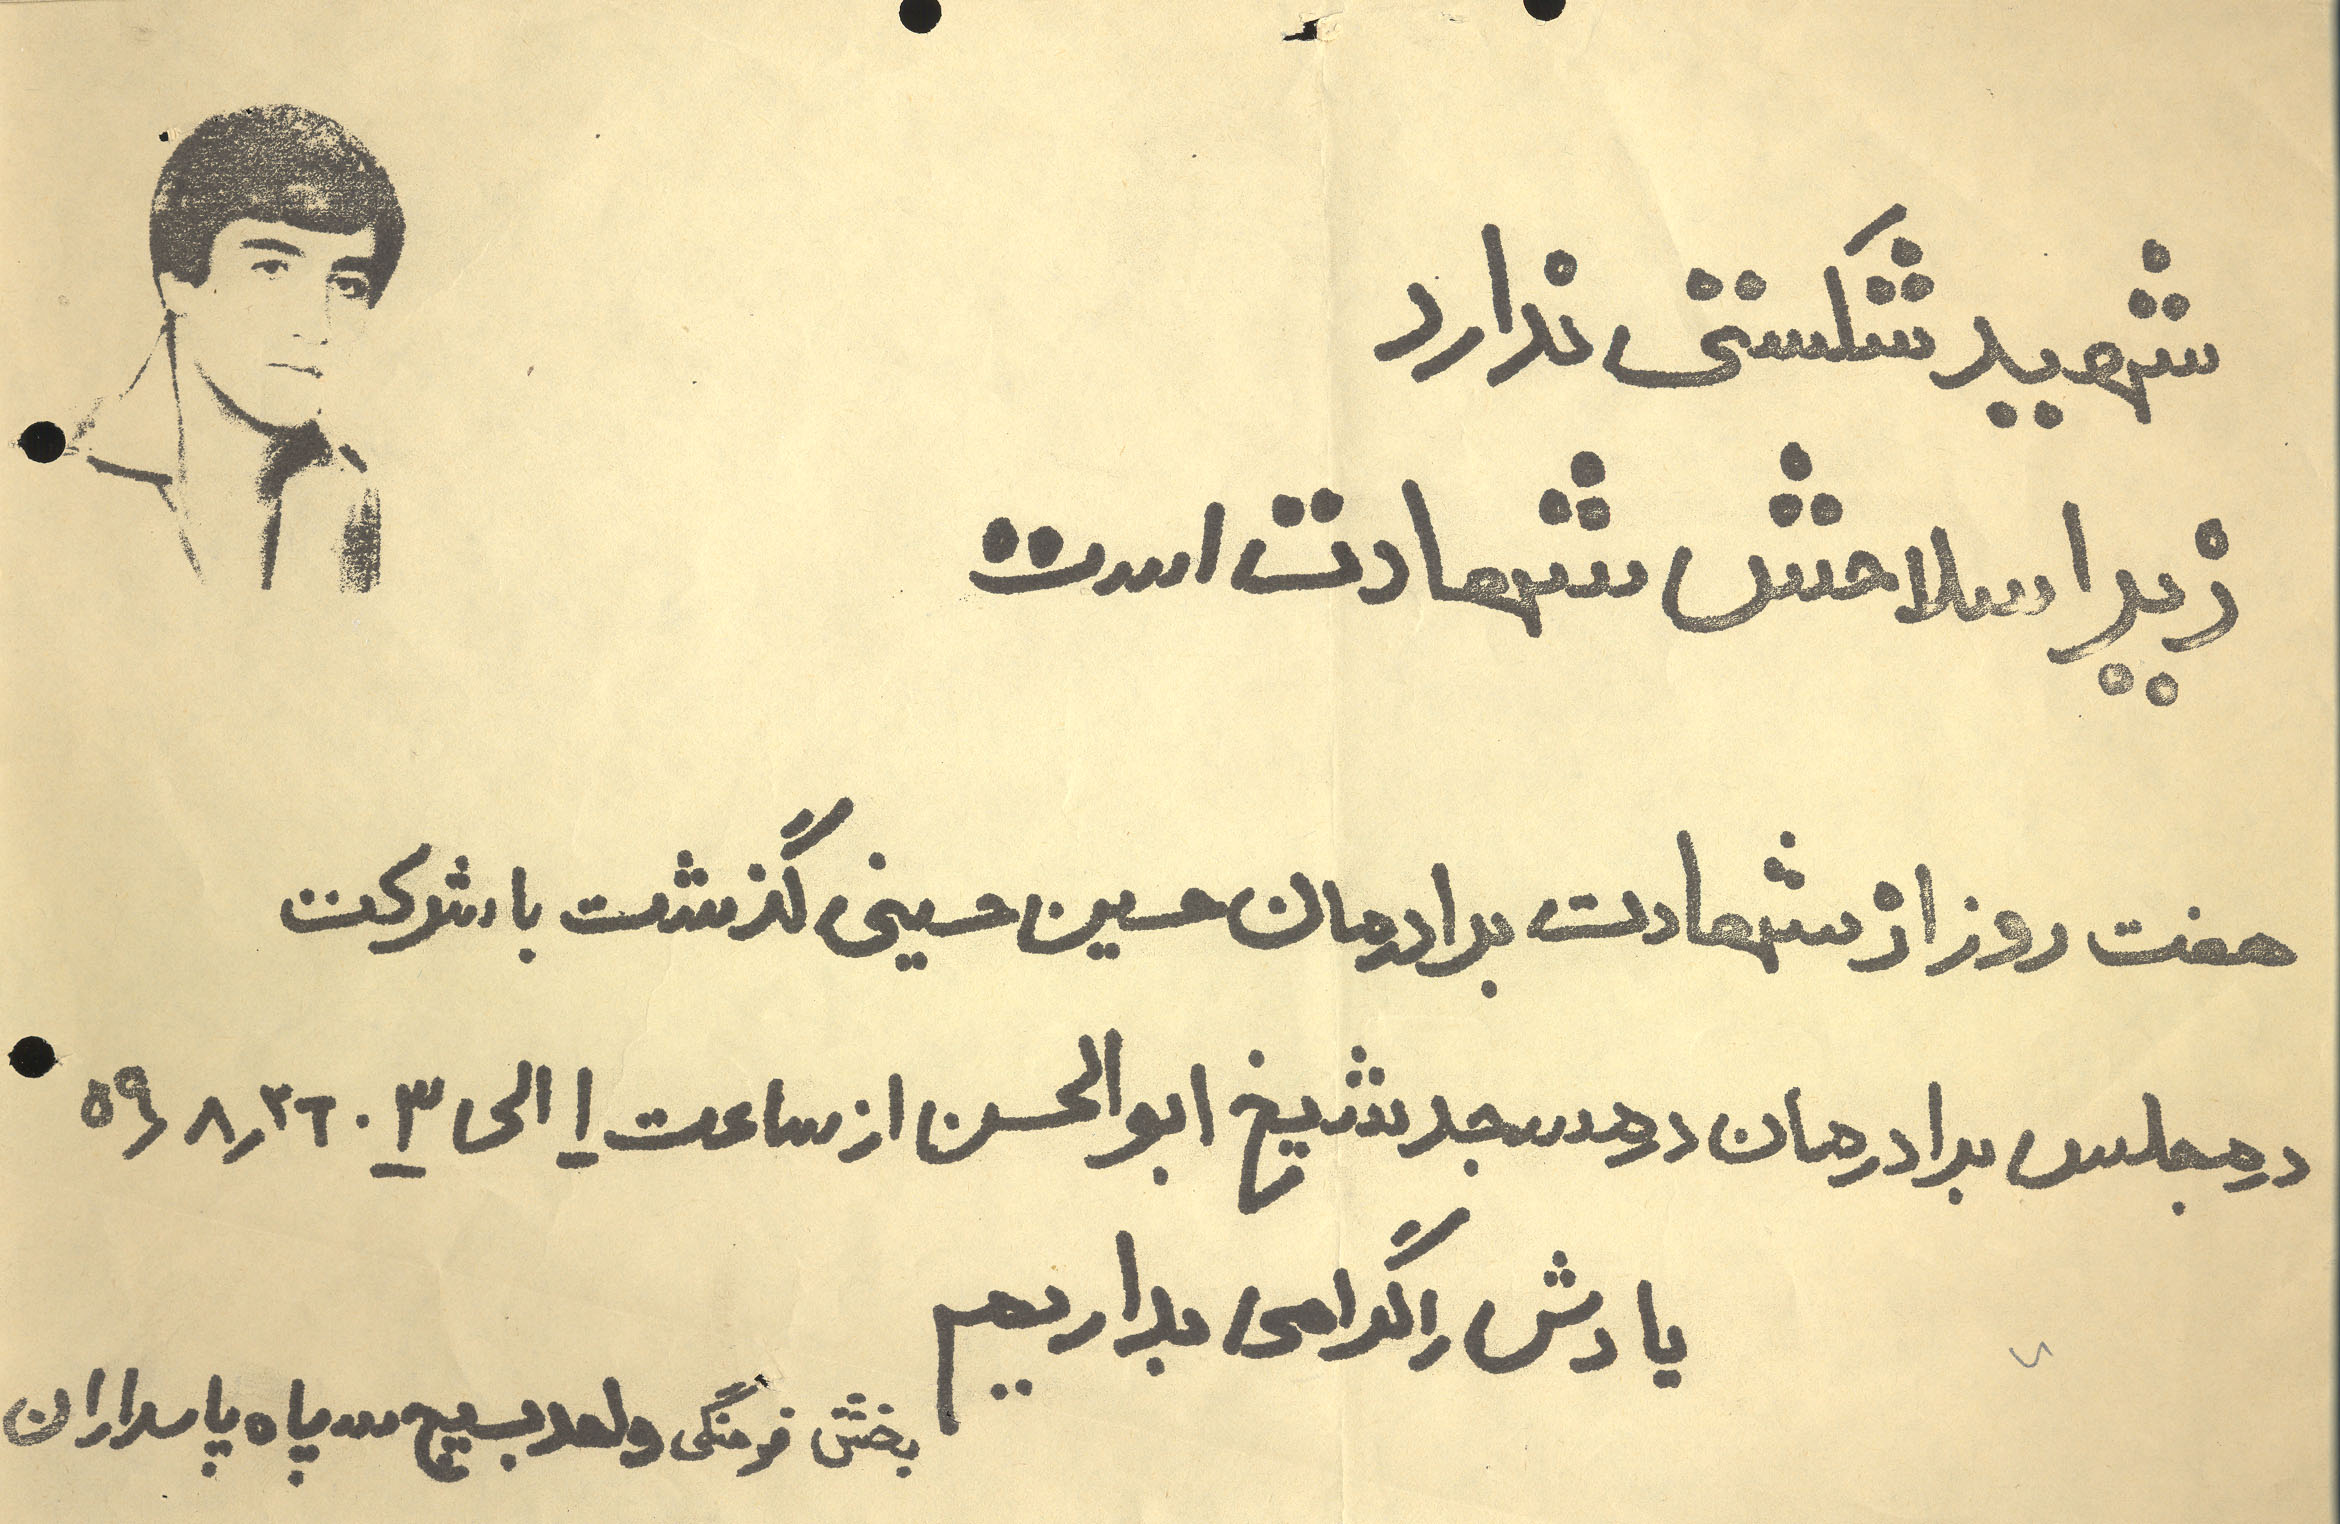 شهید شکستی ندارد
زیرا سلاحش شهادت است
هفت روز از شهادت برادرمان حسین حسینی گذشت با شرکت
در مجلس برادرمان در مسجد شیخ ابوالحسن از ساعت ۱ الی ۳ ۰ ۲۶ ر ۸ ر ۵۹
یادش را گرامی بداریم
بخش فرهنگی واحد بسیج سپاه پاسداران